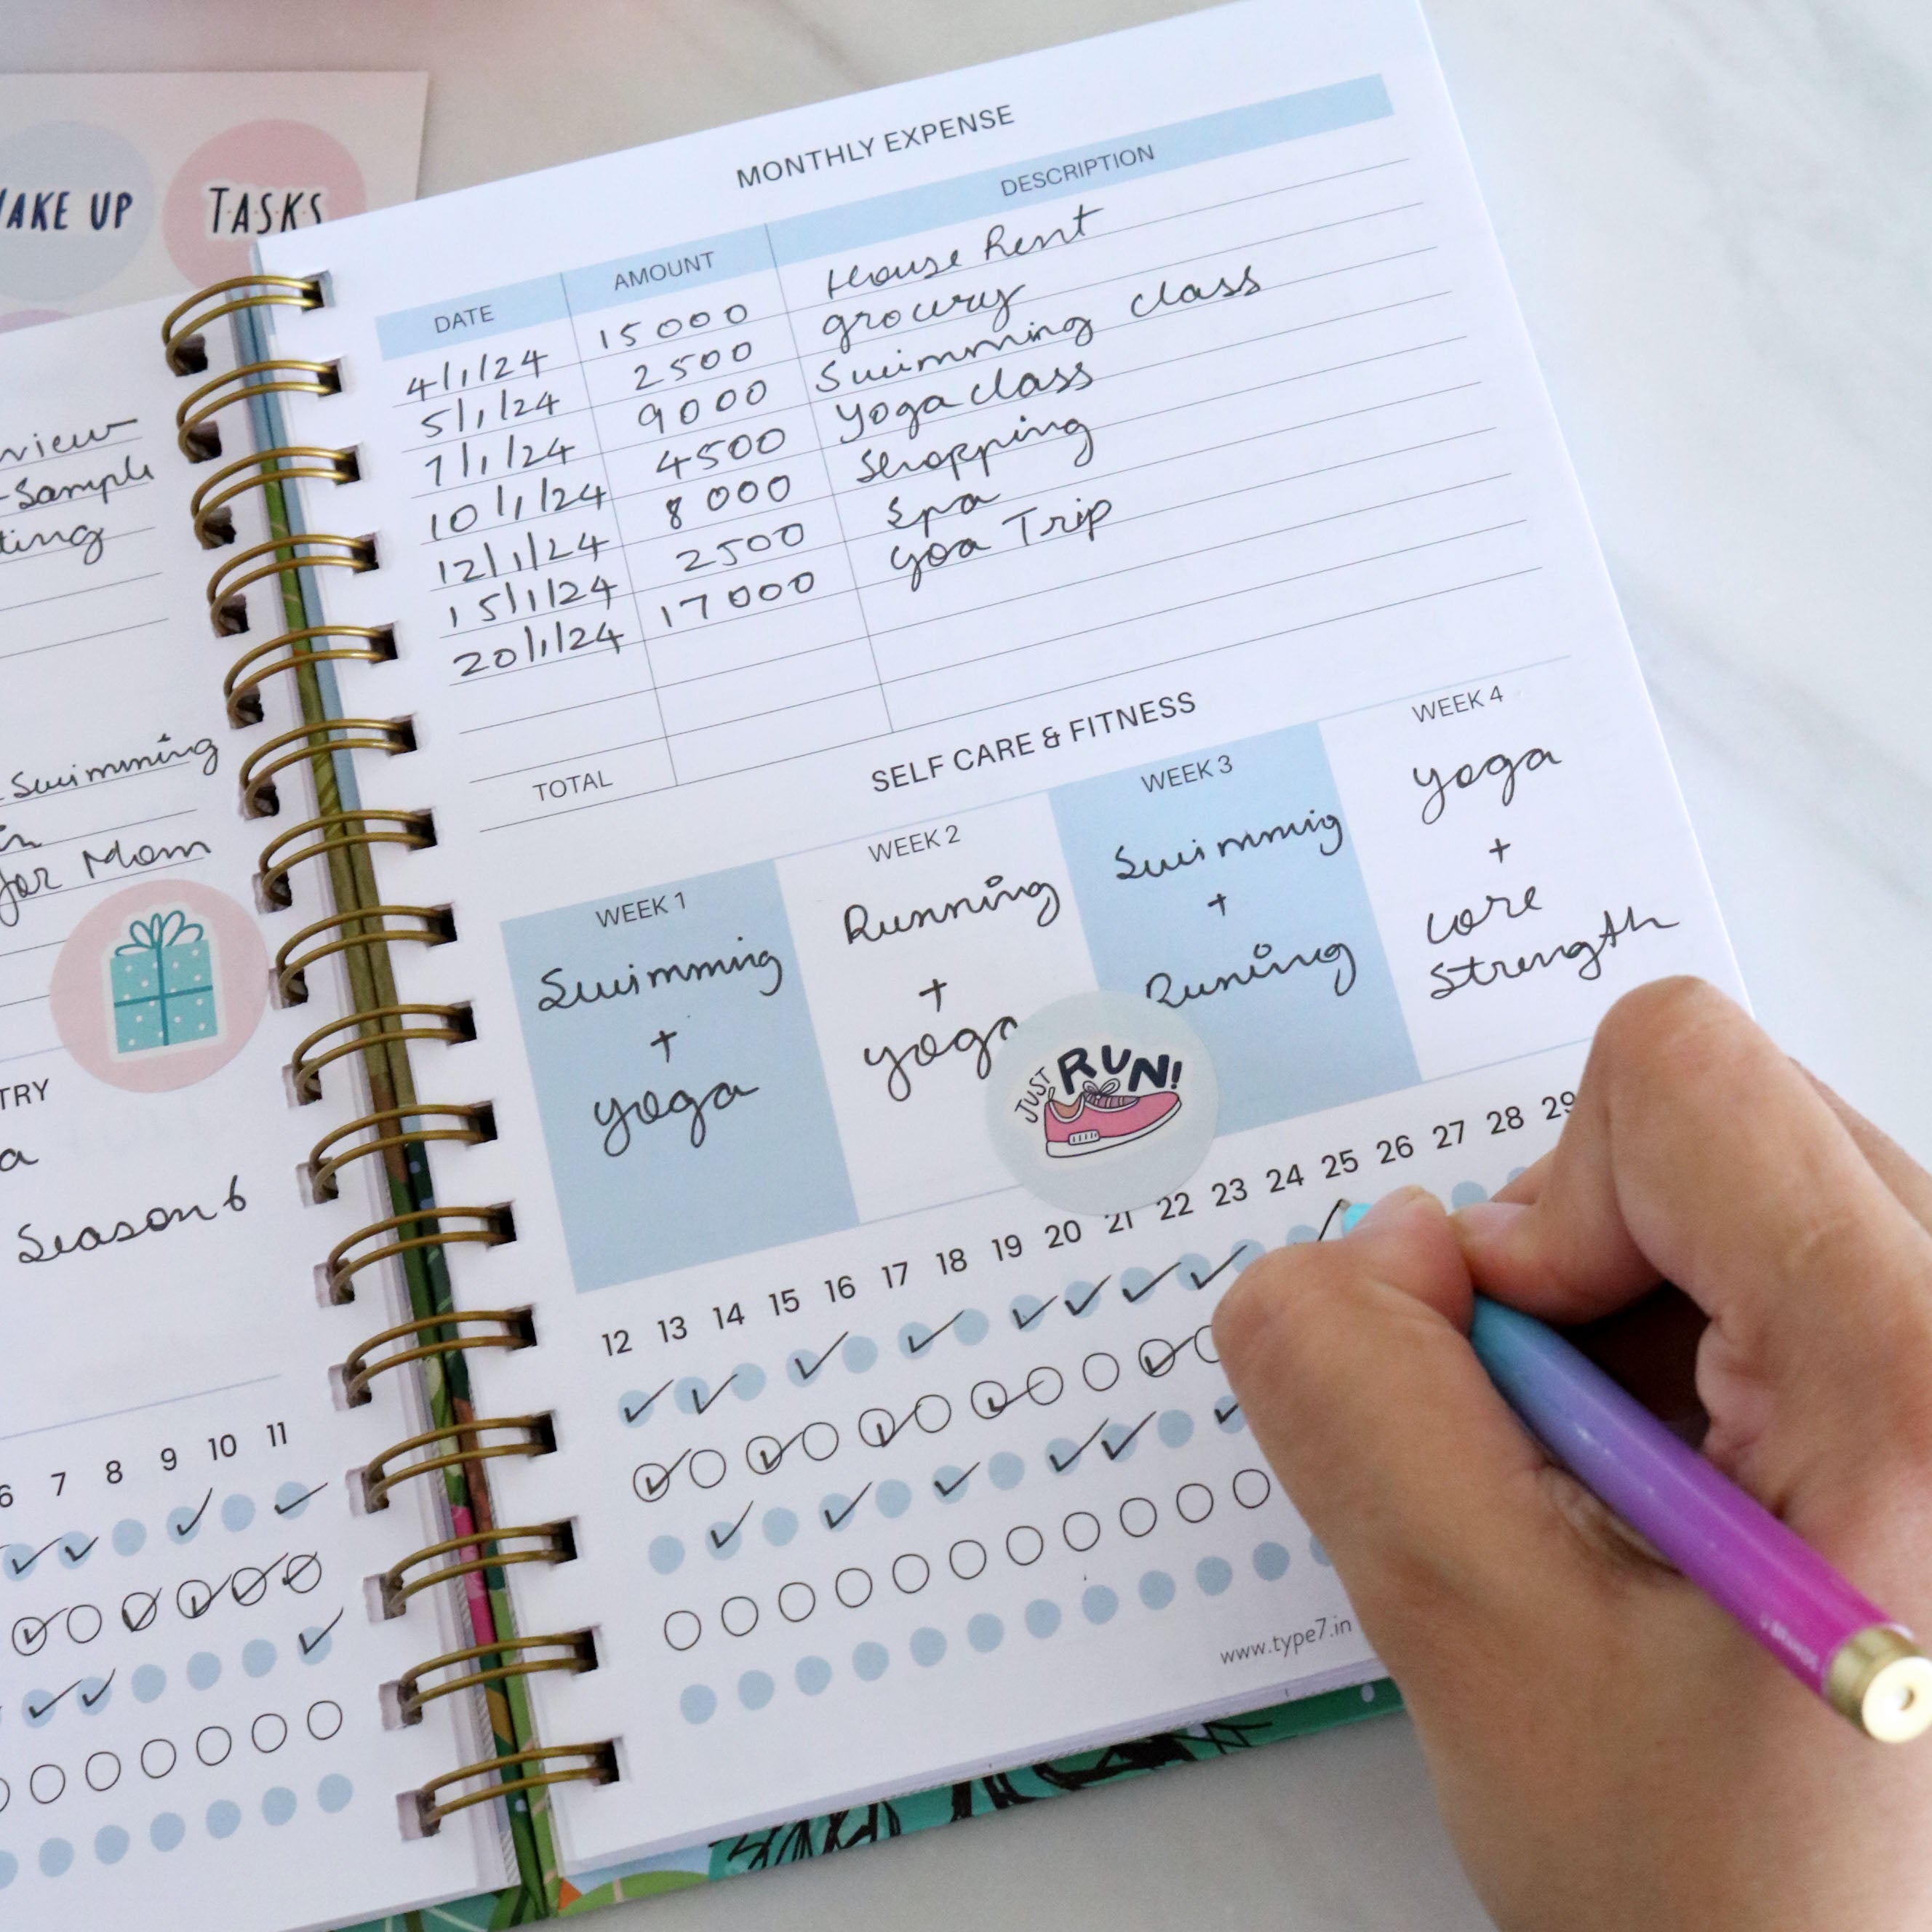 TASKS
UP
-Sample
Swimming
for Mom
Season 6
7 8 9 10 11
MONTHLY EXPENSE
DATE AMOUNT DESCRIPTION
4/1/24 15000 House Rent
5/1/24 2500 grocery
7/1/24 9000 Swimming class
10/1/24 4500 yoga class
12/1/24 8000 Shopping
15/1/24 2500 Spa
20/1/24 17000 goa Trip
TOTAL
SELF CARE & FITNESS
WEEK 1 WEEK 2 WEEK 3 WEEK 4
Swimmig Running Swimmig yoga
+ + + +
yoga yoga Runing core
strength
JUST RUN!
12 13 14 15 16 17 18 19 20 21 22 23 24 25 26 27 28 29
www.type7.in